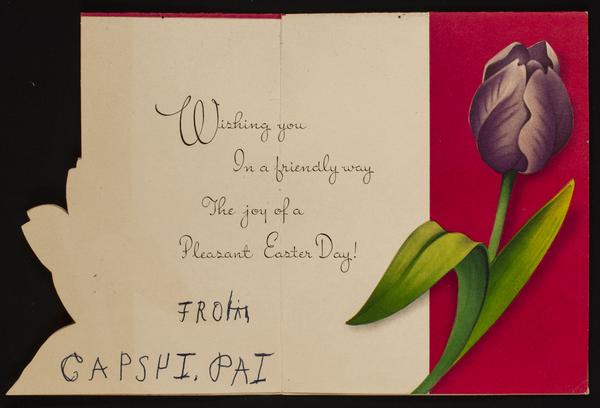 Wishing you
In a friendly way
The joy of a
Pleasant Easter Day!
FROM
CAPSHI. PAI